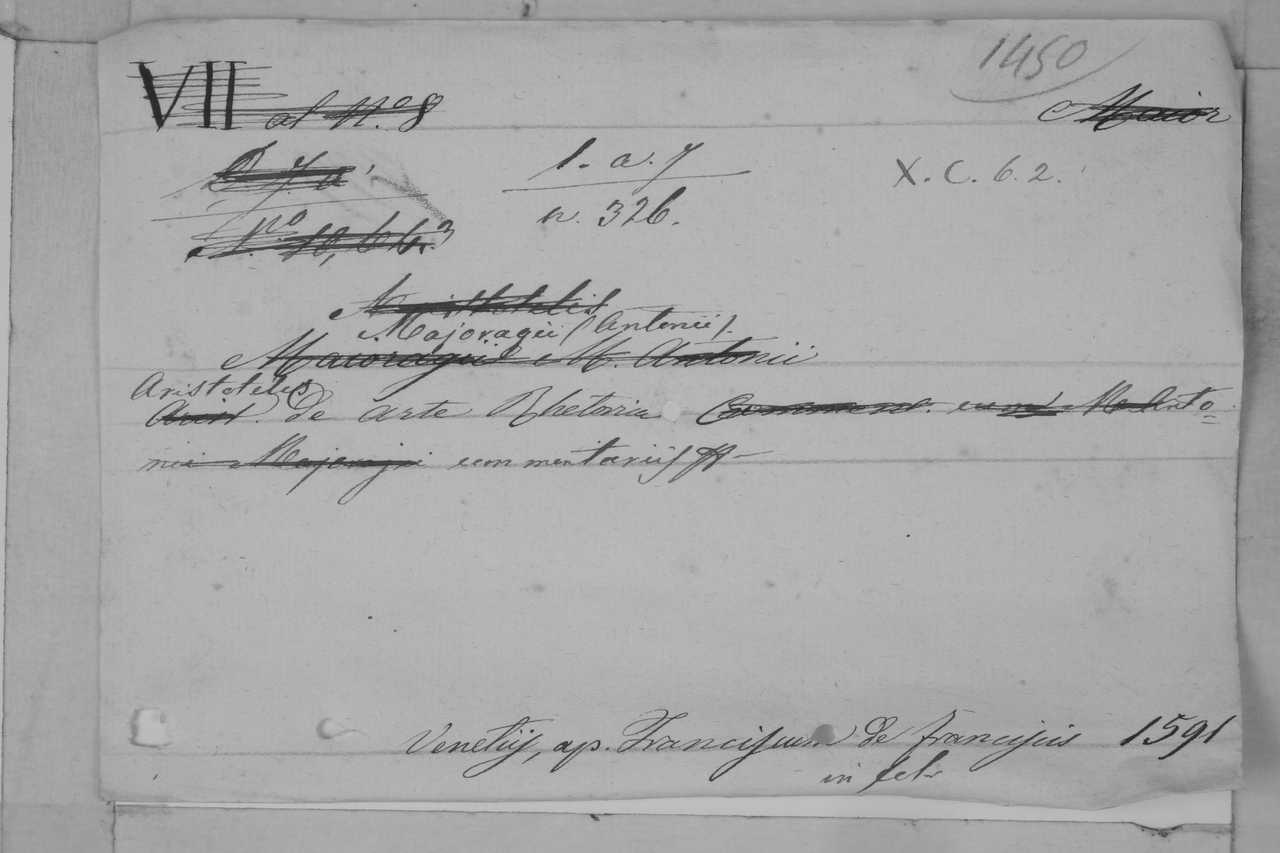 1450
VII al N.o 8
Maior
l. a. 7
X. C. 6. 2.
n. 326.
Aristotelis
Majoragii (Antonii).
Maioragii M. Antonii
Aristotelis
Arist. de arte Rhetorica Comment. cum M. Anto=
nii Majoragii commentariis
Venetiis, ap. Franciscum de Franciscis 1591
in fol.